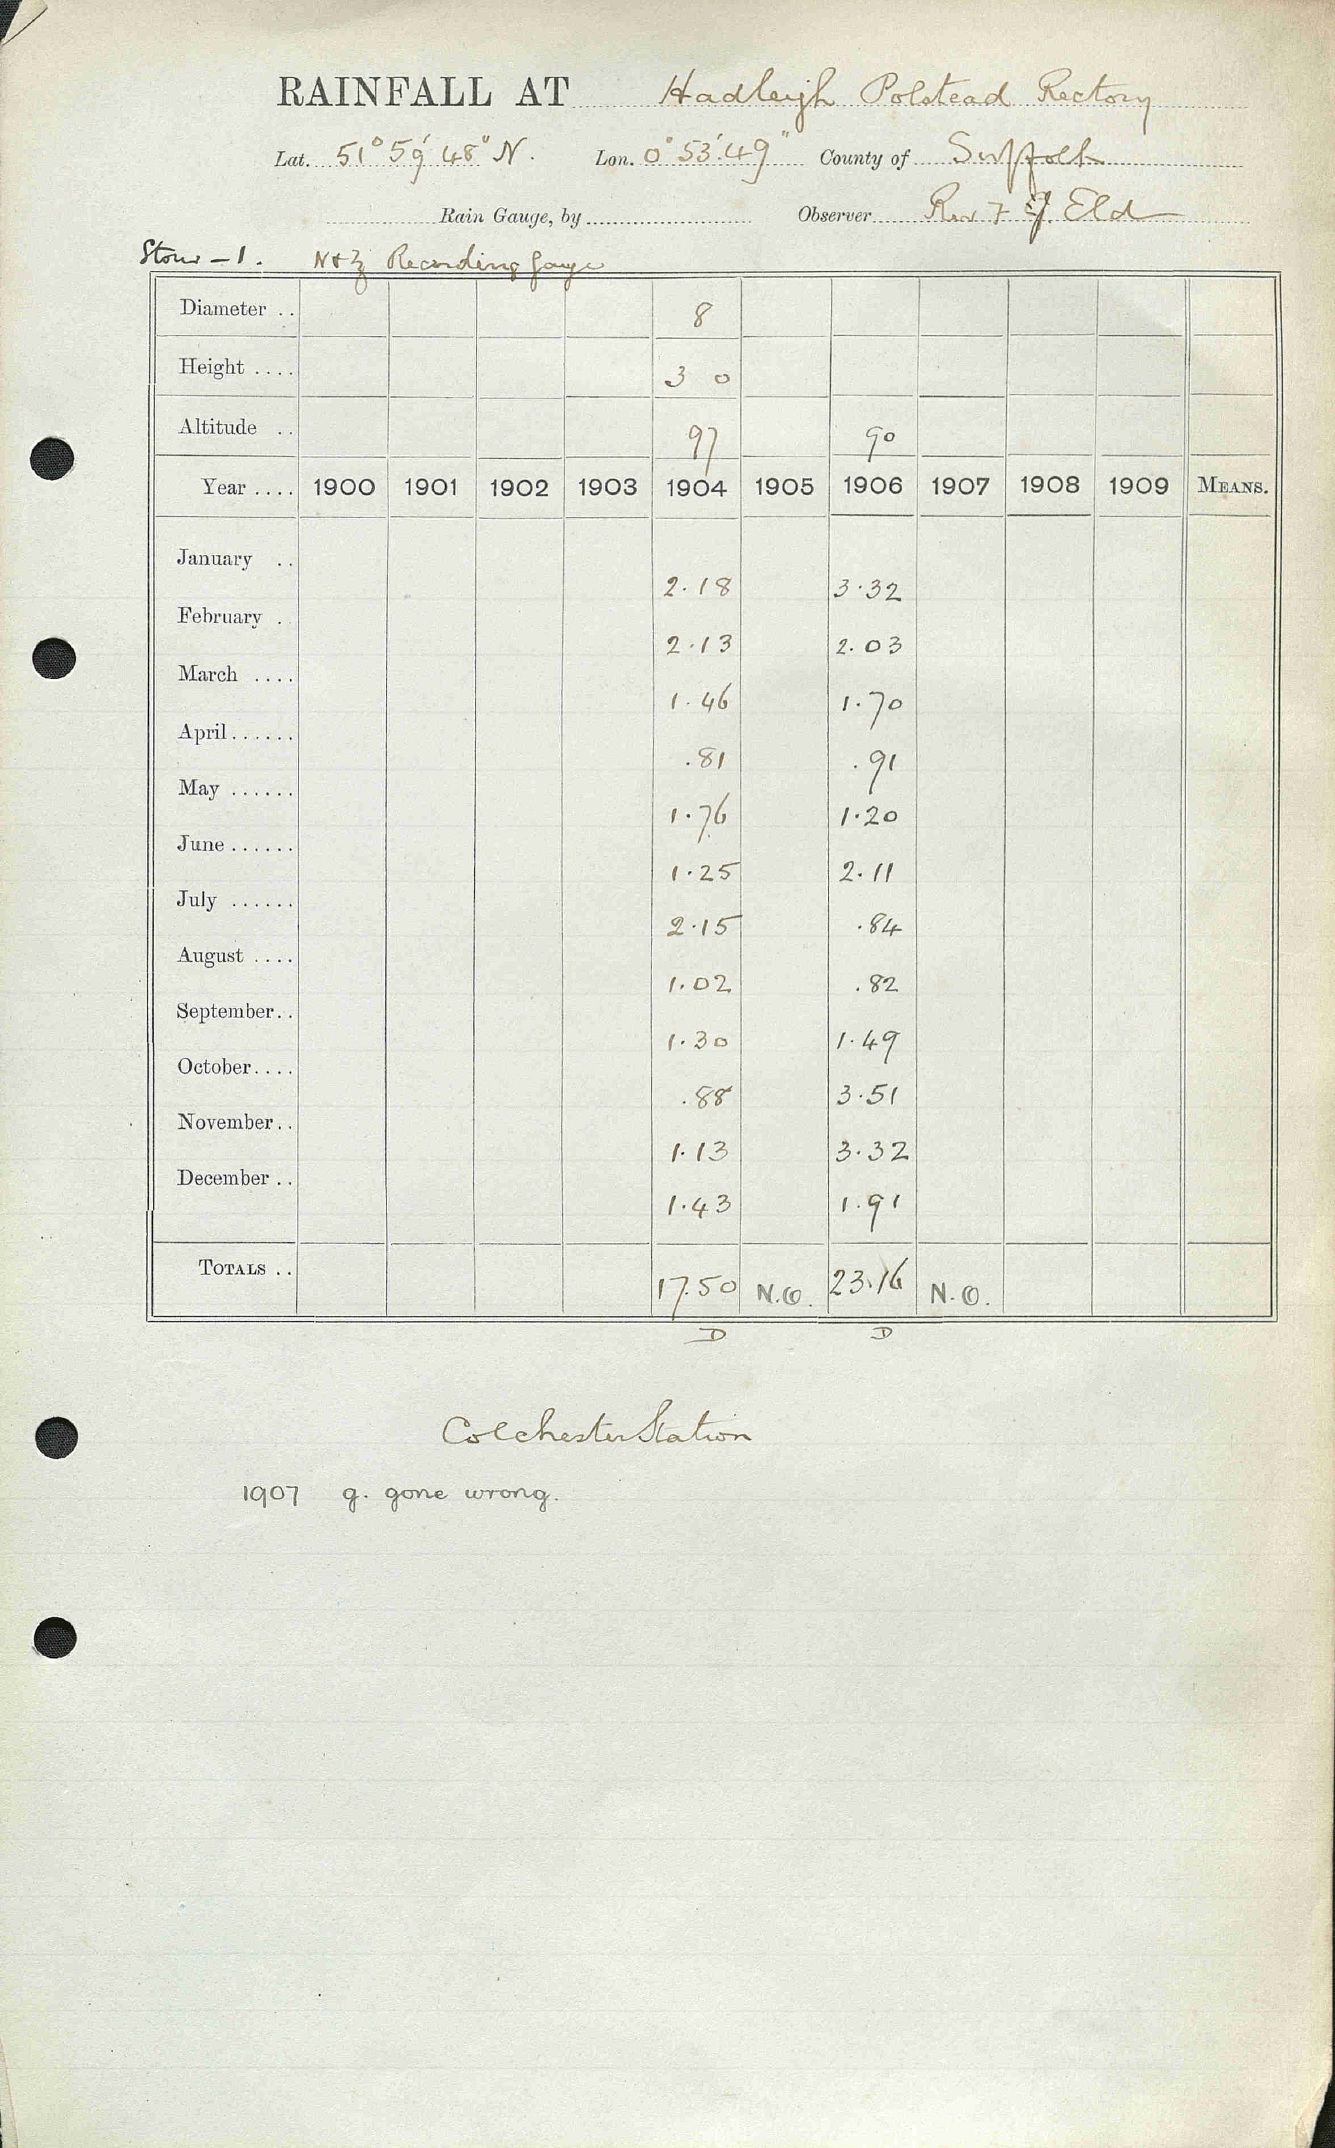 RAINFALL AT Hadleigh Polstead Rectory
Lat. 51° 59' 48" N. Lon. 0° 53' 49" County of Suffolk
Rain Gauge, by Observer Rev F J. Eld
Stour - 1. N & Z Recording gauge
Diameter .. 8
Height .... 3 0
Altitude .. 97 90
Year .... 1900 1901 1902 1903 1904 1905 1906 1907 1908 1909 MEANS.
January .. 2.18 3.32
February . 2.13 2.03
March .... 1.46 1.70
April...... .81 .91
May ...... 1.76 1.20
June ...... 1.25 2.11
July ...... 2.15 .84
August .... 1.02 .82
September.. 1.30 1.49
October.... .88 3.51
November.. 1.13 3.32
December .. 1.43 1.91
TOTALS .. 17.50 N.O. 23.16 N.O.
D D
Colchester Station
1907 g. gone wrong.